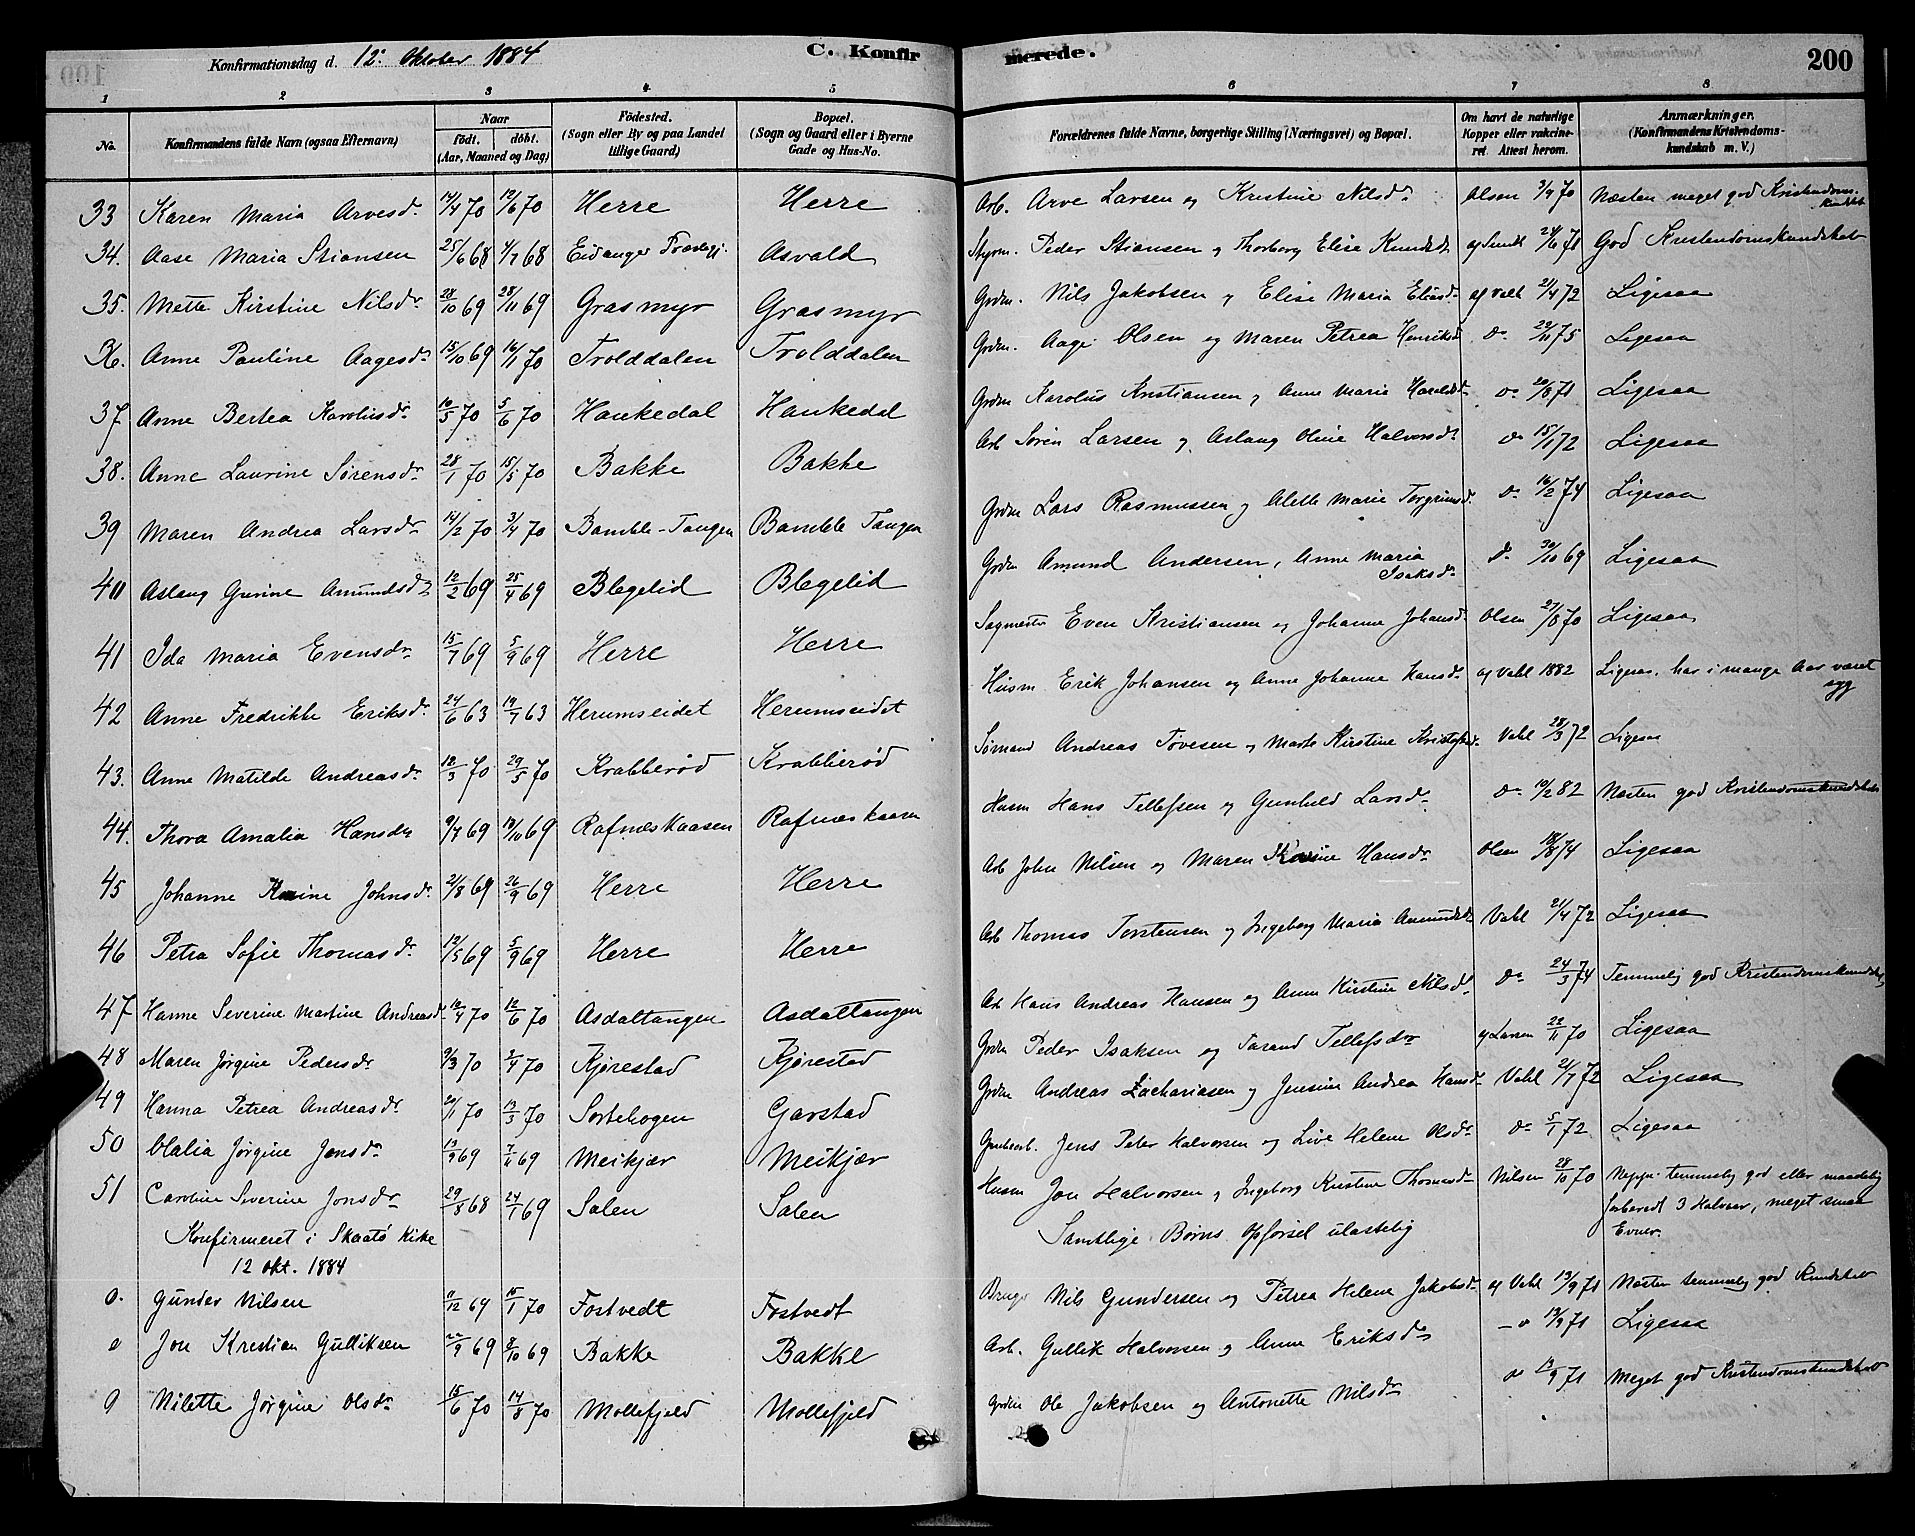 Konfirmationsdag d. 12. Oktober 1884
C. Konfirmerede.
200
1 2 3 4 5 6 7 8
No. | Konfirmandens fulde Navn (ogsaa Efternavn) | Naar født. døbt. (Aar, Maaned og Dag) | Fødested. (Sogn eller By og paa Landet tillige Gaard) | Bopæl. (Sogn og Gaard eller i Byerne Gade og Hus-No. | Forældrenes fulde Navne, borgerlige Stilling (Næringsvei) og Bopæl. | Om havt de naturlige Kopper eller vakcineret. Attest herom. | Anmærkninger. (Konfirmandens Kristendomskundskab m. V.)
33 Karen Maria Arvesdr 14/4 70 12/6 70 Herre Herre Arb. Arve Larsen og Kristine Nilsdr Olsen 3/9 70 Næsten meget god Kristendomskundskab
34. Aase Maria Stiansen 25/6 68 4/7 68 Eidanger Præstegj. Asvald Styrm. Peder Stiansen og Thorborg Elise Knudsdr af Smidt 24/6 71 God Kristendomskundskab
35. Mette Kirstine Nilsdr 28/10 69 28/11 69 Grasmyr Grasmyr Grdm. Nils Jakobsen og Elise Maria Eliasdr af Vahl 21/4 72 Ligesaa
36. Anne Pauline Aagesdr 15/10 69 16/1 70 Trolddalen Trolddalen Grdm. Aage Olsen og Maren Petrea Henriksdr do 22/11 75 Ligesaa
37 Anne Bertea Karolusdr 10/5 70 5/6 70 Haukedal Haukedal Grdm Karolus Kristiansen og Anne Maria Haraldsdr do 20/8 71 Ligesaa
38. Anne Laurine Sørensdr 28/1 70 15/5 70 Bakke Bakke Arb Søren Larsen og Aslaug Oline Halvorsdr do 15/1 72 Ligesaa
39 Maren Andrea Larsdr 14/2 70 3/4 70 Bamble-Tangen Bamble Tangen Grdm Lars Rasmussen og Alette Marie Torgrimsdr do 16/2 74 Ligesaa
40 Aslaug Gurine Amundsdr 12/2 69 25/4 69 Blegelid Blegelid Grdm Amund Andersen, Anne Maria Isaksdr do 30/10 69 Ligesaa
41 Ida Maria Evensdr 15/7 69 5/9 69 Herre Herre Sagmester Even Kristiansen og Johanne Johansdr Olsen 27/8 70 Ligesaa
42 Anne Fredrikke Eriksdr 24/6 63 19/7 63 Herumseidet Herumseidet Husm Erik Johansen og Anne Johanne Hansdr af Vahl 1882 Ligesaa. har i mange Aar været syg
43. Anne Matilde Andreasdr 12/3 70 29/5 70 Krabberød Krabberød Sømand Andreas Tovesen og Marte Kirstine Kristofersdr Vahl 28/3 72 Ligesaa
44. Thora Amalia Hansdr 9/7 69 10/10 69 Rafnæskaasen Rafnæskaasen Husm Hans Tellefsen og Gunhild Larsdr do 10/2 82 Næsten god Kristendomskundskab
45 Johanne Karine Johnsdr 21/8 69 26/9 69 Herre Herre Arb John Nilsen og Maren Karine Hansdr Olsen 18/8 74 Ligesaa
46 Petra Sofie Thomasdr 12/5 69 5/9 69 Herre Herre Arb Thomas Torstensen og Ingeborg Maria Amundsdr Vahl 21/4 72 Ligesaa
47 Hanne Severine Martine Andreasdr 10/4 70 12/6 70 Asdaltangen Asdaltangen Arb Hans Andreas Hansen og Anne Kirstine Nilsdr do 24/3 74 Temmelig god Kristendomskundskab
48 Maren Jørgine Pedersdr 9/3 70 2/4 70 Kjørestad Kjørestad Grdm Peder Isaksen og Tarand Tellefsdr af Larsen 22/11 70 Ligesaa
49 Hanna Petrea Andreasdr 20/1 70 13/3 70 Sortehogen Garstad Grdm Andreas Zachariasen og Jensine Andrea Hansdr Vahl 21/7 72 Ligesaa
50 Olalia Jørgine Jensdr 13/9 69 7/11 69 Meikjær Meikjær Jens Peter Halvorsen og Live Helene Olsdr do 5/1 72 Ligesaa
51 Caroline Severine Jonsdr 29/8 68 24/1 69 Salen Salen Husm Jon Halvorsen og Ingeborg Kristine Thomasdr Nilsen 28/10 70 Neppe temmelig god eller maadelig
forberedt 3 Halvaar, meget smaa
Evner.
Samtlige Børns Opførsel ulastelig
Konfirmeret i Skaatø Kirke
12 Okt. 1884
0. Gunder Nilsen 11/12 69 15/1 70 Fostvedt Fostvedt Bruger Nils Gundersen og Petrea Helene Jakobsdr af Vahl 13/9 71 Næsten temmelig god Kundskab
0 Jon Kristian Gulliksen 22/9 69 8/10 69 Bakke Bakke Arb. Gullik Halvorsen og Anne Eriksdr – do 13/9 71 Ligesaa
0 Nilette Jørgine Olsdr 15/6 70 14/8 70 Mollefjeld Mollefjeld Grdm Ole Jakobsen og Antonette Nilsdr do 13/9 71 Meget god Kristendomskundskab